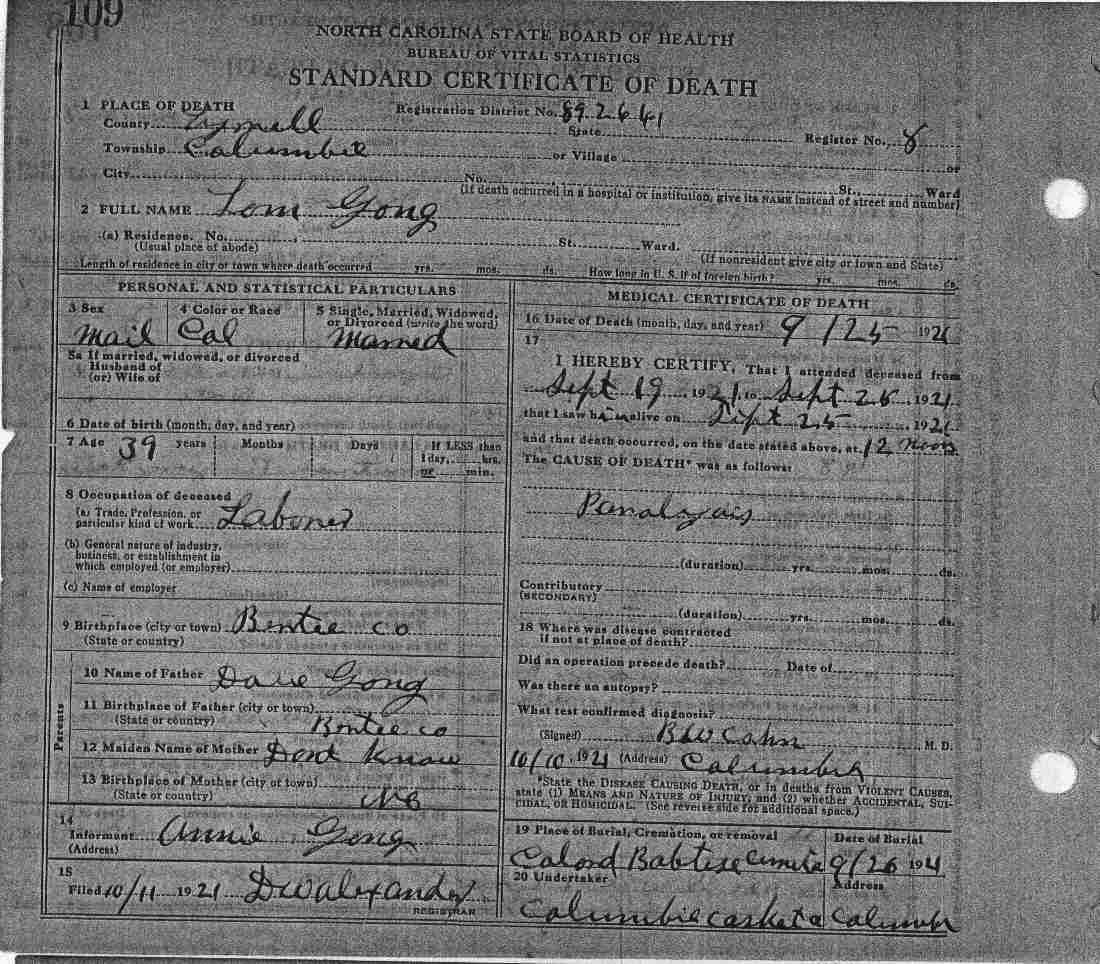 109
NORTH CAROLINA STATE BOARD OF HEALTH
BUREAU OF VITAL STATISTICS
STANDARD CERTIFICATE OF DEATH
1 PLACE OF DEATH
Registration District No. 892641
County Tyrrell State Register No. 8
Township Columbia or Village or
City No. St., Ward
(If death occurred in a hospital or institution, give its NAME instead of street and number)
2 FULL NAME Tom Gong
(a) Residence. No. St. Ward.
(Usual place of abode) (If nonresident give city or town and State)
Length of residence in city or town where death occurred yrs. mos. ds. How long in U. S. if of foreign birth? yrs. mos. ds.
PERSONAL AND STATISTICAL PARTICULARS
3 Sex 4 Color or Race 5 Single, Married, Widowed,
or Divorced (write the word)
Mail Col Married
5a If married, widowed, or divorced
Husband of
(or) Wife of
6 Date of birth (month, day, and year)
7 Age 39 years Months Days If LESS than
1 day, hrs.
or min.
8 Occupation of deceased
(a) Trade, Profession, or
particular kind of work Laborer
(b) General nature of industry,
business, or establishment in
which employed (or employer)
(c) Name of employer
9 Birthplace (city or town) Bertee co
(State or country)
Parents
10 Name of Father Dave Gong
11 Birthplace of Father (city or town)
(State or country) Bertee co
12 Maiden Name of Mother Dont Know
13 Birthplace of Mother (city or town)
(State or country) NC
14
Informant Annie Gong
(Address)
15
Filed 10/11 1921 DW Alexander
REGISTRAR
MEDICAL CERTIFICATE OF DEATH
16 Date of Death (month, day, and year) 9/25 1921
17
I HEREBY CERTIFY, That I attended deceased from
Sept 19, 1921, to Sept 25, 1921
that I saw him alive on Sept 25, 1921
and that death occurred, on the date stated above, at 12 noon
The CAUSE OF DEATH* was as follows:
Paralysis
(duration) yrs. mos. ds.
Contributory
(SECONDARY)
(duration) yrs. mos. ds.
18 Where was disease contracted
if not at place of death?
Did an operation precede death? Date of
Was there an autopsy?
What test confirmed diagnosis?
(Signed) BW Cohn M. D.
10/10, 1921 (Address) Columbia
*State the DISEASE CAUSING DEATH, or in deaths from VIOLENT CAUSES,
state (1) MEANS AND NATURE OF INJURY; and (2) whether ACCIDENTAL, SUI-
CIDAL, OR HOMICIDAL. (See reverse side for additional space.)
19 Place of Burial, Cremation, or removal Date of Burial
Colord Babtise 9/26 1921
20 Undertaker Address
Columbia casket co Columbia